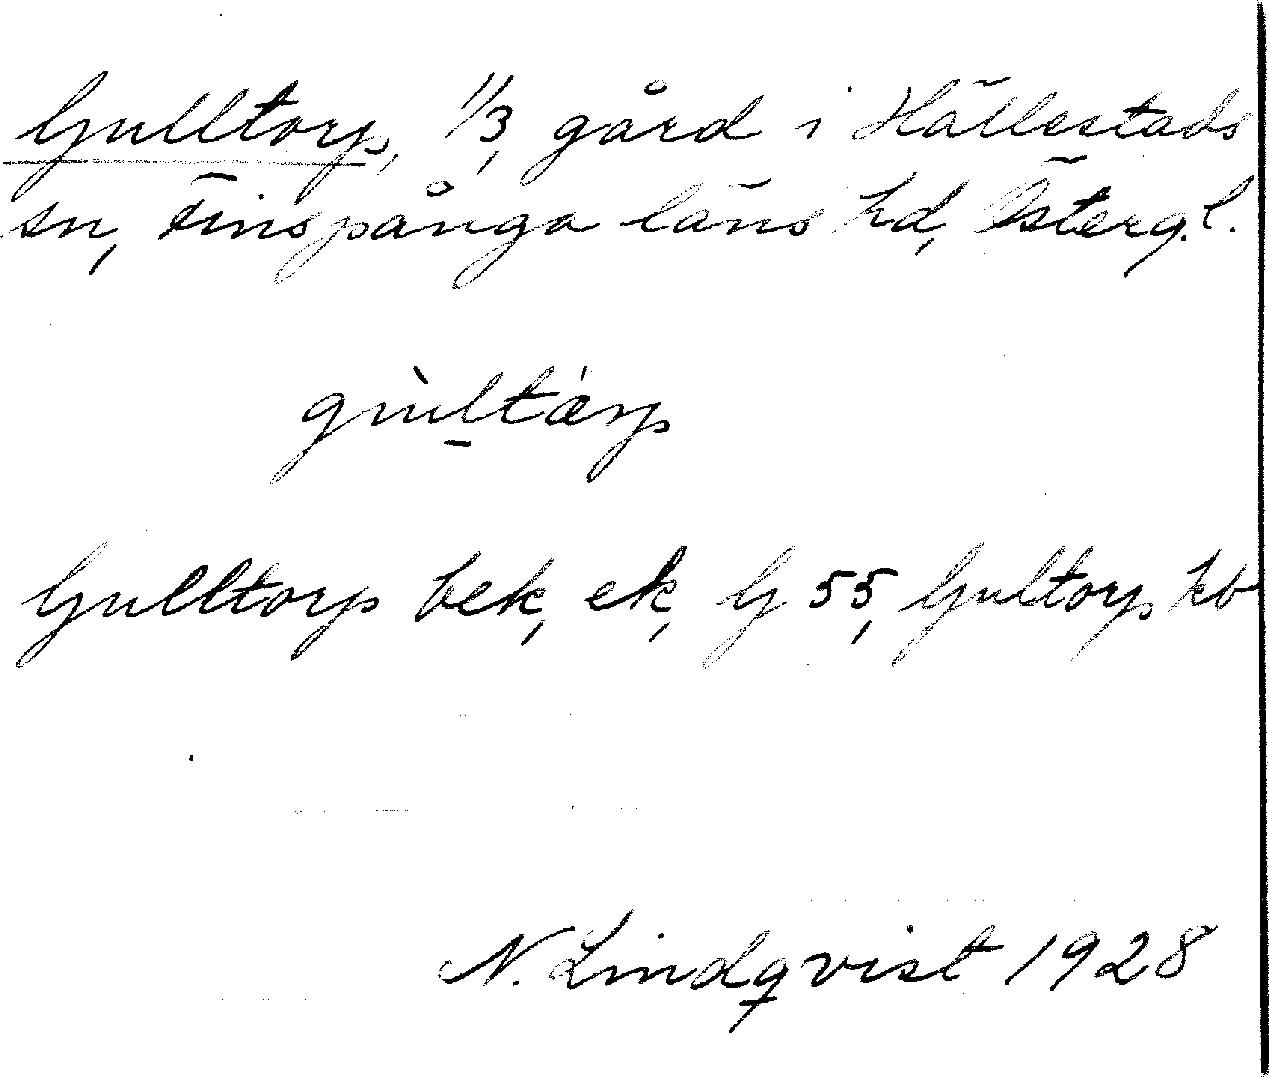 Gulltorp, 1/3, gård i Hällestads
sn, Finspånga läns hd, Östergl.
gùltárp
Gulltorp bek, ek, G 55, Gultorp kb
N. Lindqvist 1928